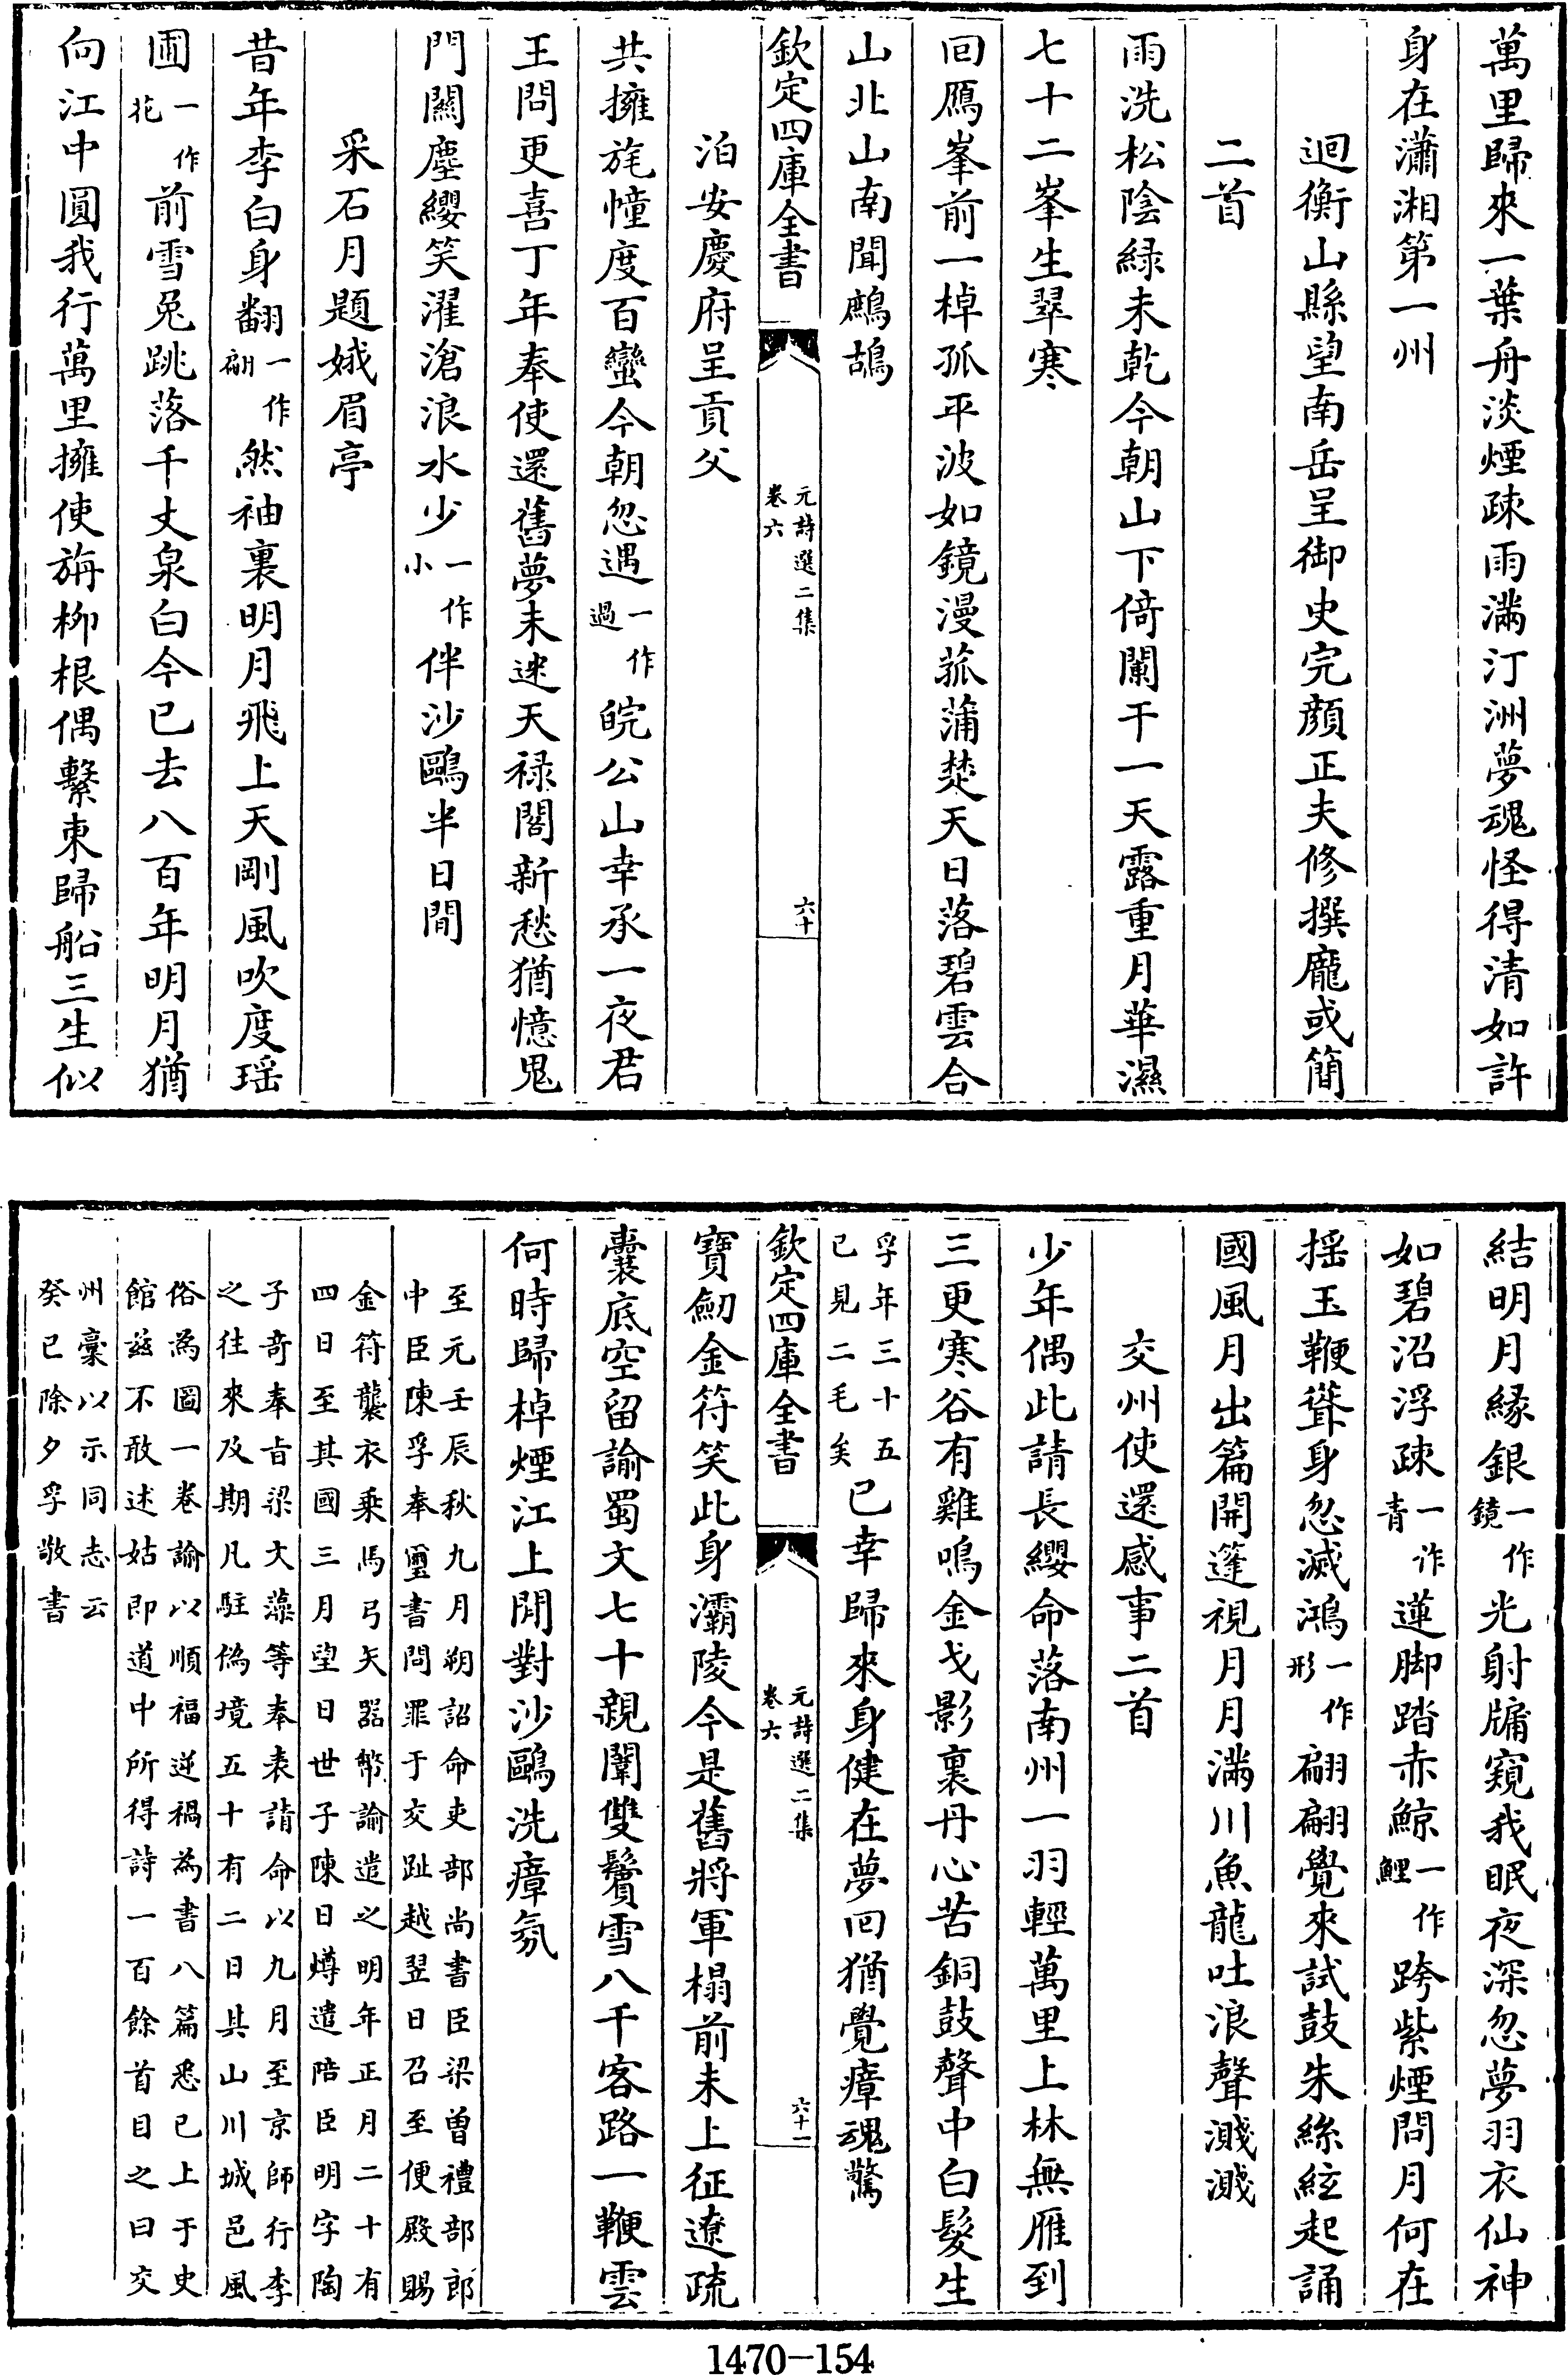 萬里歸來一葉舟淡煙疎雨滿汀洲夢魂怪得清如許
身在瀟湘第一州
迴衡山縣望南岳呈御史完顔正夫修撰龐或簡
二首
雨洗松陰緑未乾今朝山下倚闌干一天露重月華濕
七十二峯生翠寒
回鴈峯前一棹孤平波如鏡漫菰蒲楚天日落碧雲合
山北山南聞鷓鴣
欽定四庫全書
元詩選二集
卷六
六十
泊安慶府呈貢父
共擁旄幢度百蠻今朝忽遇一作過皖公山幸承一夜君
王問更喜丁年奉使還舊夢未迷天禄閣新愁猶憶鬼
門關塵纓笑濯滄浪水少一作小伴沙鷗半日閒
采石月題娥眉亭
昔年李白身翻一作翩然袖裏明月飛上天剛風吹度瑶
圃一作花前雪兎跳落千丈泉白今已去八百年明月猶
向江中圓我行萬里擁使旃柳根偶繫東歸船三生似
結明月緣銀一作鏡光射牖窺我眠夜深忽夢羽衣仙神
如碧沼浮疎一作青蓮脚踏赤鯨一作鯉跨紫煙問月何在
揺玉鞭聳身忽滅鴻一作形翩翩覺來試鼓朱絲絃起誦
國風月出篇開篷視月月滿川魚龍吐浪聲濺濺
交州使還感事二首
少年偶此請長纓命落南州一羽輕萬里上林無雁到
三更寒谷有雞鳴金戈影裏丹心苦銅鼓聲中白髮生
孚年三十五已見二毛矣已幸歸來身健在夢回猶覺瘴魂驚
欽定四庫全書
元詩選二集
卷六
六十一
寶劒金符笑此身灞陵今是舊將軍榻前未上征遼疏
囊底空留諭蜀文七十親闈雙鬢雪八千客路一鞭雲
何時歸棹煙江上閒對沙鷗洗瘴氛
至元壬辰秋九月朔詔命吏部尚書臣梁曾禮部郎
中臣陳孚奉璽書問罪于交趾越翌日召至便殿賜
金符襲衣乘馬弓矢器幣諭遣之明年正月二十有
四日至其國三月望日世子陳日燇遣陪臣明字陶
子竒奉㫖梁大藻等奉表請命以九月至京師行李
之往來及期凡駐偽境五十有二日其山川城邑風
俗為圖一卷諭以順福逆禍為書八篇悉已上于史
館兹不敢述姑即道中所得詩一百餘首目之曰交
州藁以示同志云
癸巳除夕孚敬書
1470-154